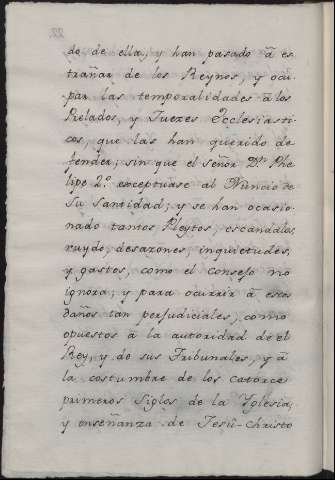 do de ella, y han pasado â es
trañar de los Reynos, y ocu
par las temporalidades â los
Prelados, y Juezes Ecclesiasti
cos, que las han querido de
fender; sin que el señor Dn. Phe
lipe 2.º exceptuase al Nuncio de
Su Santidad; y se han ocasio
nado tantos Pleytos, escandalos,
ruydo, desazones, inquietudes,
y gastos, como el Consejo no
ignora; y para ocurrir â estos
daños tan perjudiciales, como
opuestos â la autoridad de el
Rey, y de sus Tribunales, y â
la costumbre de los catorce
primeros Siglos de la Yglesia,
y enseñanza de Jesu-Christo